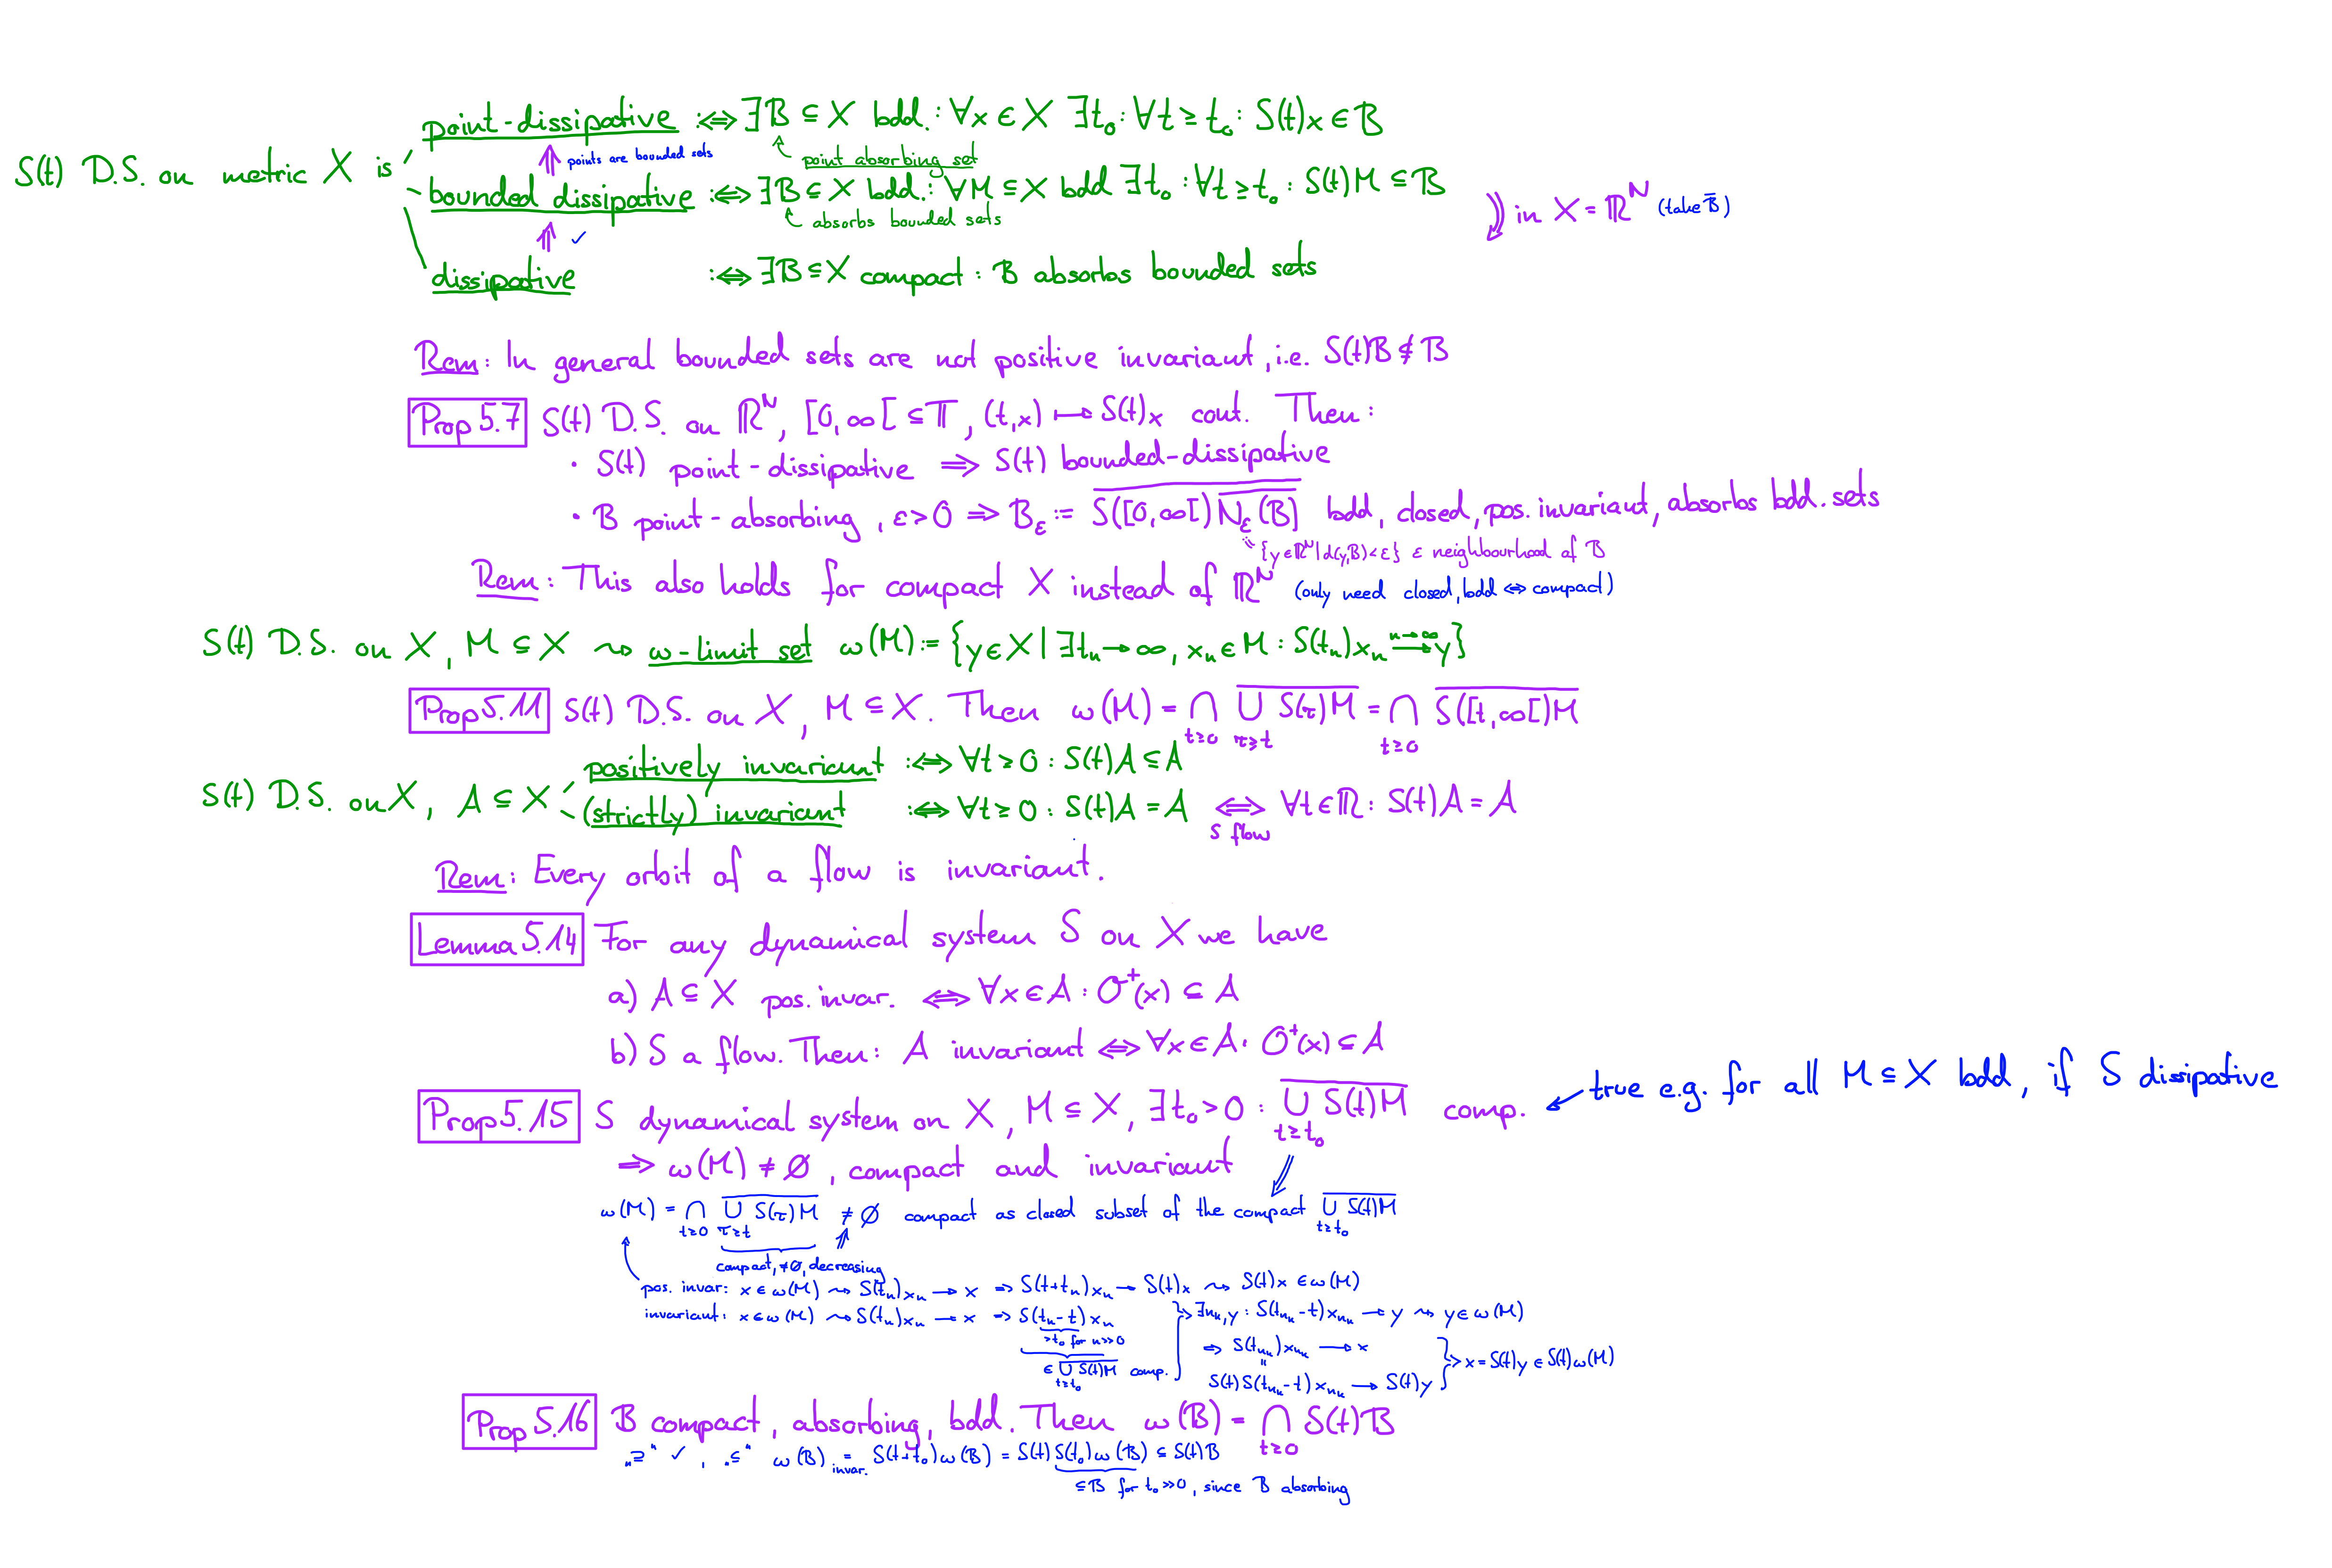 point-dissipative :⇔ ∃B ⊆ X bdd.: ∀x ∈ X ∃t₀: ∀t ≥ t₀: S(t)x ∈ B
S(t) D.S. on metric X is
⇑ points are bounded sets
point absorbing set
bounded dissipative :⇔ ∃B ⊆ X bdd.: ∀M ⊆ X bdd ∃t₀: ∀t ≥ t₀: S(t)M ⊆ B
absorbs bounded sets
⇓ in X = ℝᴺ (take B̅)
⇑ ✓
dissipative :⇔ ∃B ⊆ X compact: B absorbs bounded sets
Rem: In general bounded sets are not positive invariant, i.e. S(t)B ⊈ B
Prop 5.7 S(t) D.S. on ℝᴺ, [0,∞[ ⊆ 𝕋, (t,x) ↦ S(t)x cont. Then:
• S(t) point-dissipative ⇒ S(t) bounded-dissipative
• B point-absorbing, ε>0 ⇒ B_ε := \overline{S([0,∞[) \overline{N_ε(B)}} bdd, closed, pos. invariant, absorbs bdd. sets
:= {y ∈ ℝᴺ | d(y,B)<ε} ε neighbourhood of B
Rem: This also holds for compact X instead of ℝᴺ (only need closed, bdd ⇔ compact)
S(t) D.S. on X, M ⊆ X ⇝ ω-limit set ω(M) := {y ∈ X | ∃tₙ → ∞, xₙ ∈ M: S(tₙ)xₙ \xrightarrow{n→∞} y}
Prop 5.11 S(t) D.S. on X, M ⊆ X. Then ω(M) = ⋂_{t≥0} \overline{⋃_{τ≥t} S(τ)M} = ⋂_{t≥0} \overline{S([t,∞[)M}
positively invariant :⇔ ∀t ≥ 0: S(t)A ⊆ A
S(t) D.S. on X, A ⊆ X
(strictly) invariant :⇔ ∀t ≥ 0: S(t)A = A ⇔ ∀t ∈ ℝ: S(t)A = A
S flow
Rem: Every orbit of a flow is invariant.
Lemma 5.14 For any dynamical system S on X we have
a) A ⊆ X pos. invar. ⇔ ∀x ∈ A: O⁺(x) ⊆ A
b) S a flow. Then: A invariant ⇔ ∀x ∈ A: O⁺(x) ⊆ A
Prop 5.15 S dynamical system on X, M ⊆ X, ∃t₀>0: \overline{⋃_{t≥t₀} S(t)M} comp. ← true e.g. for all M ⊆ X bdd, if S dissipative
⇒ ω(M) ≠ ∅, compact and invariant
ω(M) = ⋂_{t≥0} \overline{⋃_{τ≥t} S(τ)M} ≠ ∅ compact as closed subset of the compact \overline{⋃_{t≥t₀} S(t)M}
compact, ≠∅, decreasing
pos. invar: x ∈ ω(M) ⇝ S(tₙ)xₙ → x ⇒ S(t+tₙ)xₙ → S(t)x ⇝ S(t)x ∈ ω(M)
invariant: x ∈ ω(M) ⇝ S(tₙ)xₙ → x ⇒ S(tₙ-t)xₙ } ⇒ ∃n_k, y: S(t_{n_k}-t)x_{n_k} → y ⇝ y ∈ ω(M)
>t₀ for n>>0
⇒ S(t_{n_k})x_{n_k} → x
∈ \overline{⋃_{t≥t₀} S(t)M} comp.
=
S(t)S(t_{n_k}-t)x_{n_k} → S(t)y
} ⇒ x = S(t)y ∈ S(t)ω(M)
Prop 5.16 B compact, absorbing, bdd. Then ω(B) = ⋂_{t≥0} S(t)B
„⊇“ ✓, „⊆“ ω(B) = S(t+t₀)ω(B) = S(t)S(t₀)ω(B) ⊆ S(t)B
invar.
⊆B for t₀>>0, since B absorbing